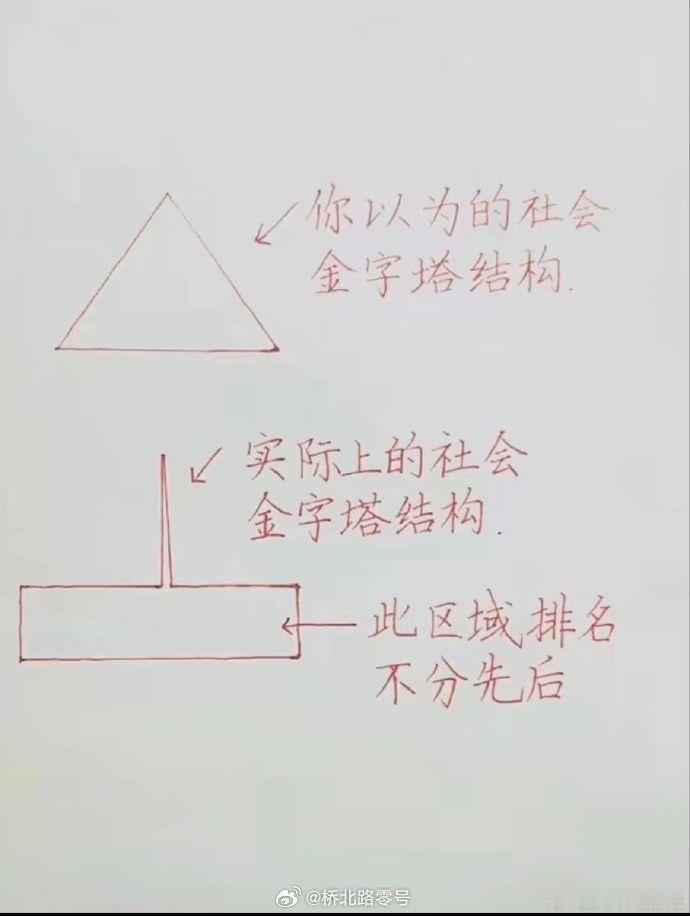 你以为的社会
金字塔结构.
实际上的社会
金字塔结构.
此区域排名
不分先后
@桥北路零号